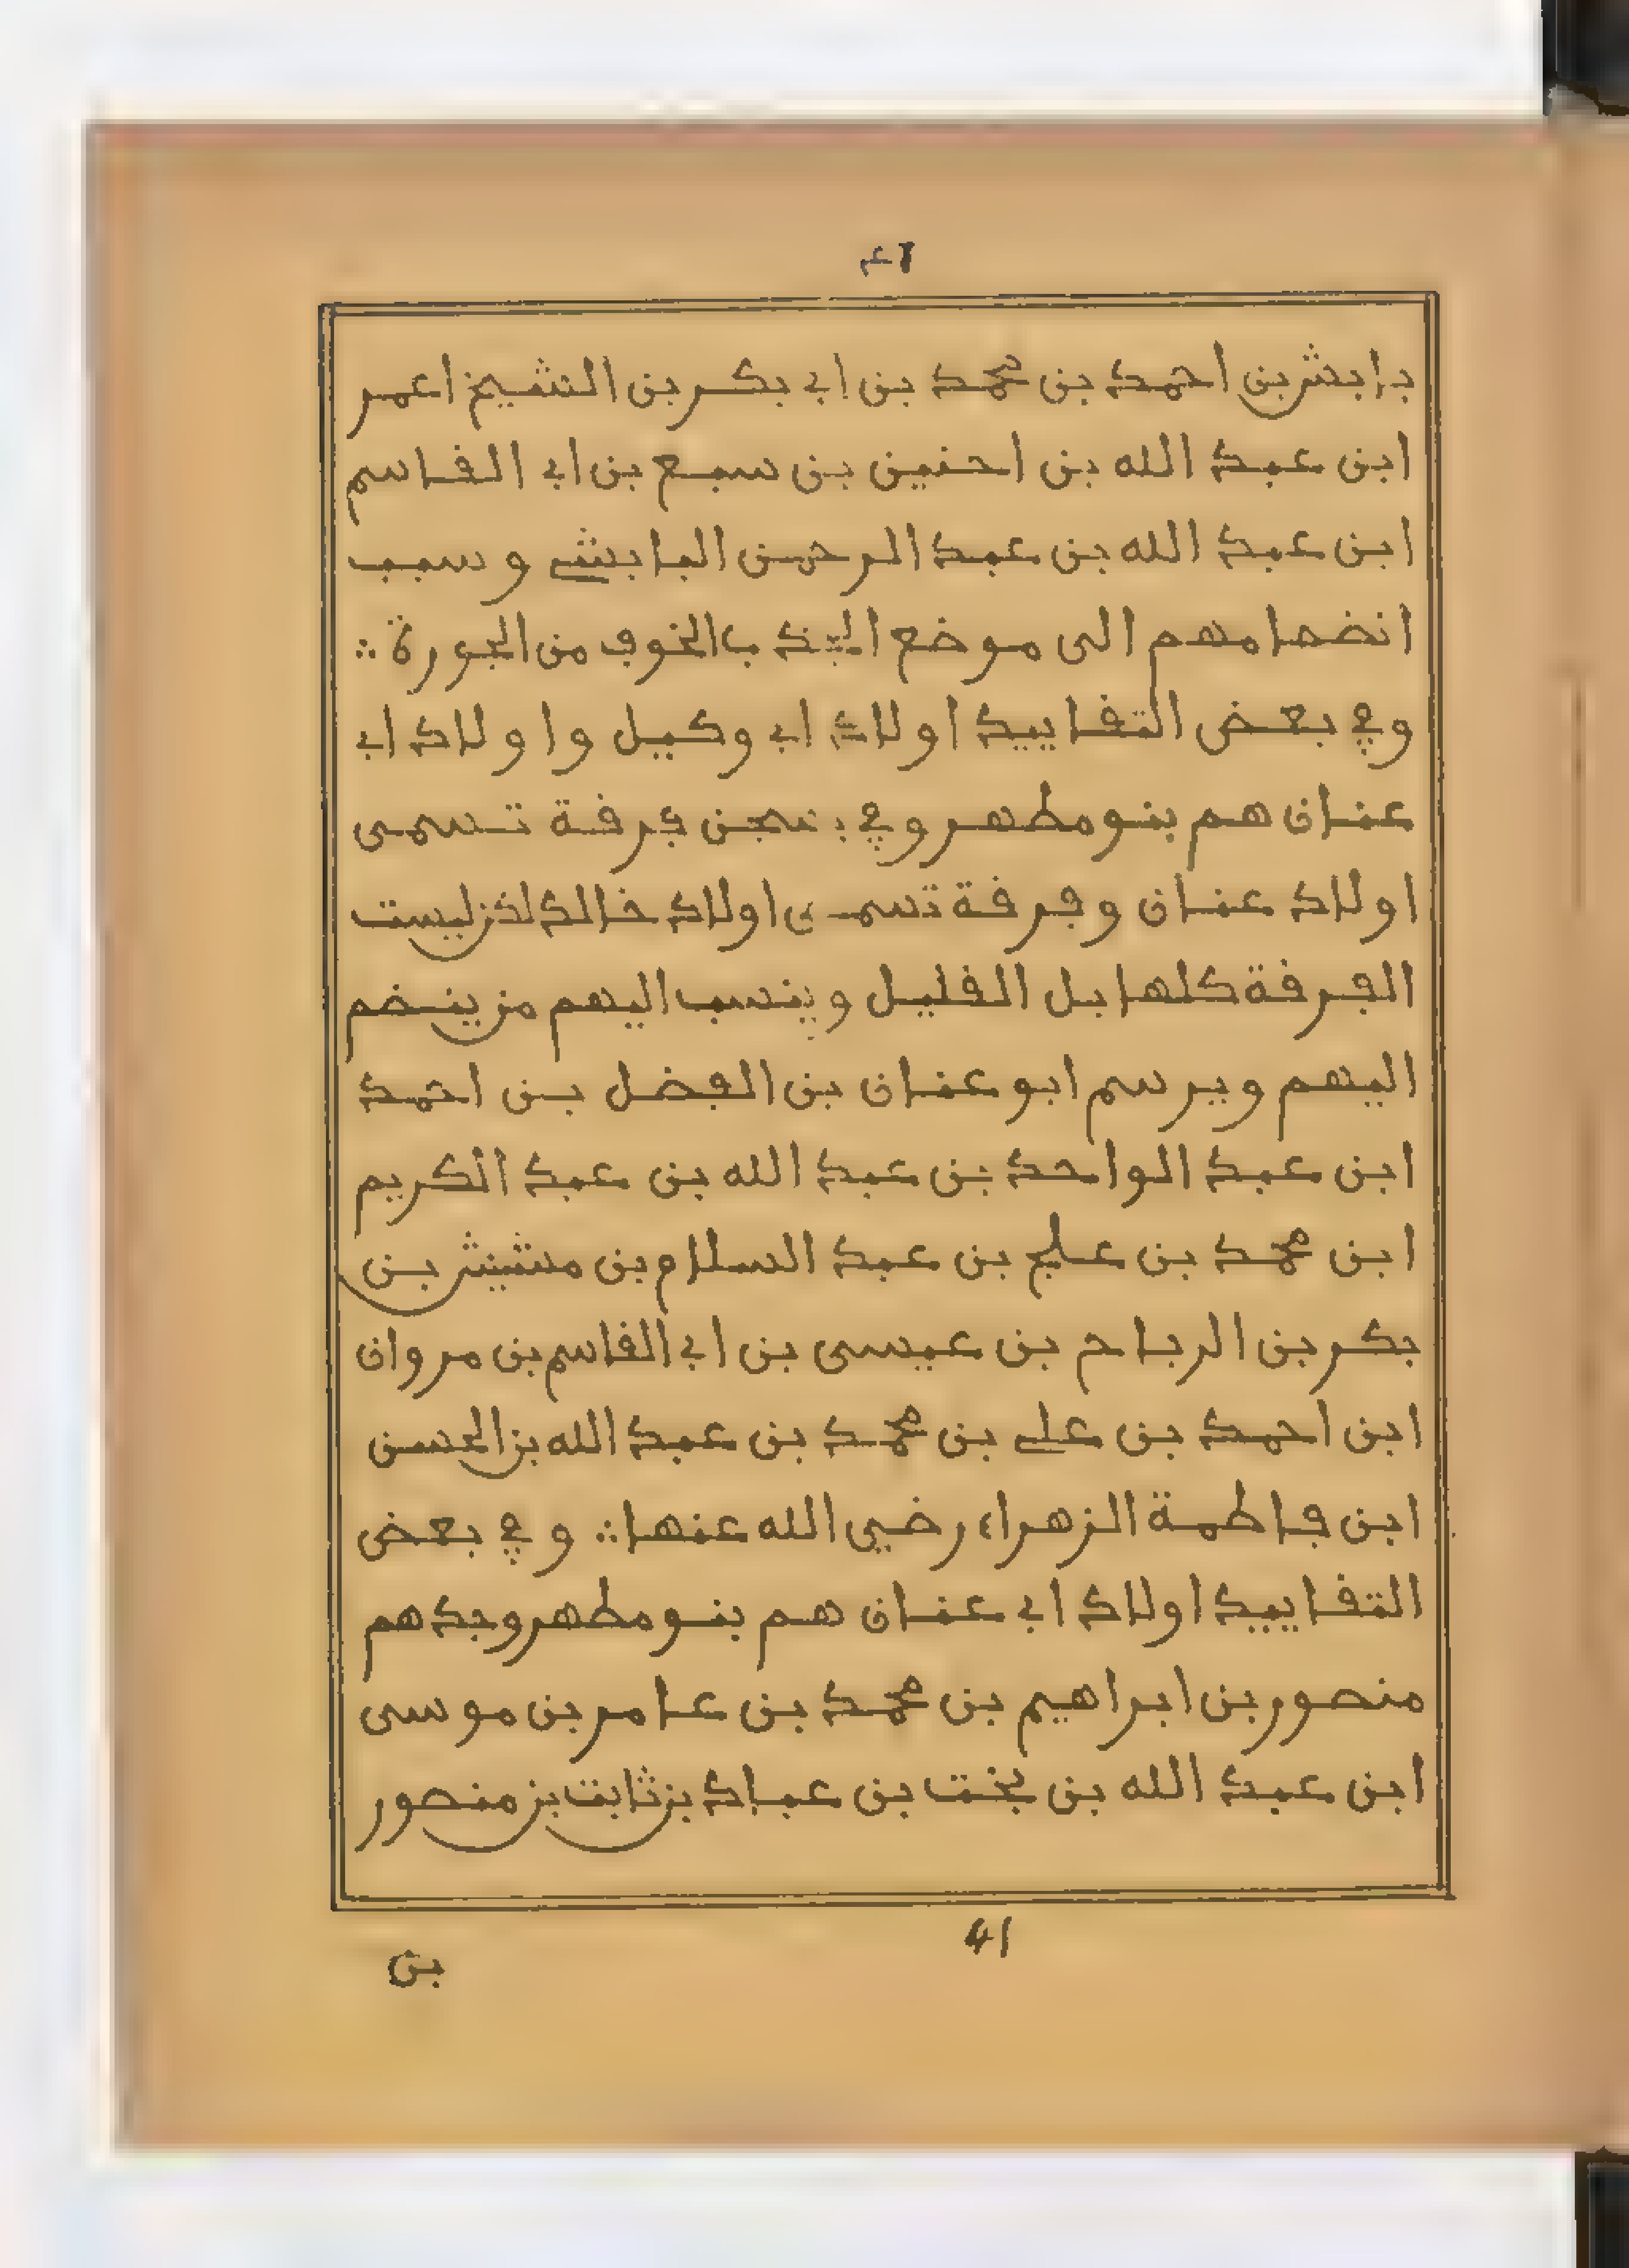 ٤١
بإبش بن احمد بن محمد بن ابي بكر بن الشيخ اعمر
ابن عبد الله بن احنين بن سبع بن ابي القاسم
ابن عبد الله بن عبد الرحمن البابشي و سبب
انضمامهم الى موضع الجذب الخوف من الجورة ∴
وفي بعض التقاييد اولاد ابي وكيل وا ولاد ابي
عنان هم بنو مطهر وفي فرقة تسمى
اولاد عنان وفرقة تسمى اولاد خالد لكن ليست
الفرقة كلها بل القليل وينسب اليهم من ينضم
اليهم ويرسم ابو عنان بن الفضل بن احمد
ابن عبد الواحد بن عبد الله بن عبد الكريم
ابن محمد بن علي بن عبد السلام بن مشيش بن
بكر بن الرباح بن عيسى بن ابي القاسم بن مروان
ابن احمد بن علي بن محمد بن عبد الله بن الحسن
ابن فاطمة الزهراء رضي الله عنها ∴ وفي بعض
التقاييد اولاد ابي عنان هم بنو مطهر وجدهم
منصور بن ابراهيم بن محمد بن عامر بن موسى
ابن عبد الله بن بخت بن عباد بن ثابت بن منصور
41
بن